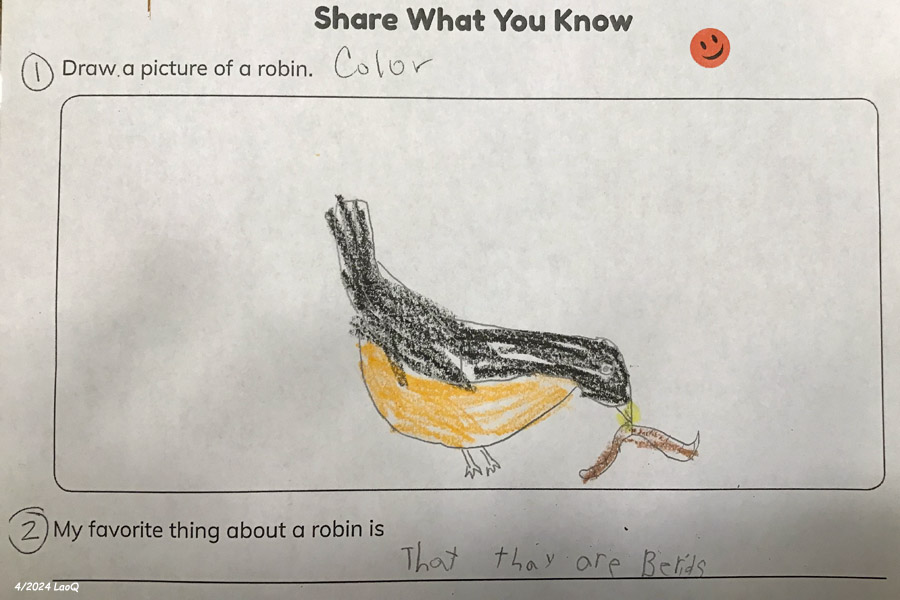 Share What You Know
1 Draw a picture of a robin. Color
2 My favorite thing about a robin is
That thay are Berids
4/2024 LaoQ